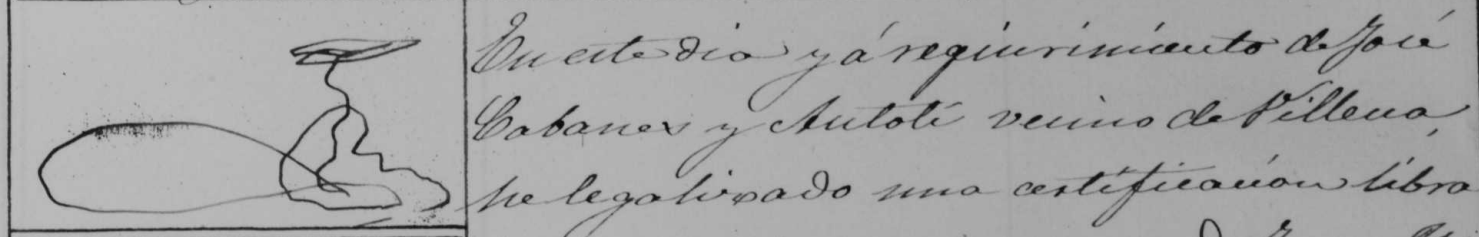 En este dia y á requirimiento de José
Cabanes y Antolí vecino de Villena,
he legalizado una certificacion libra